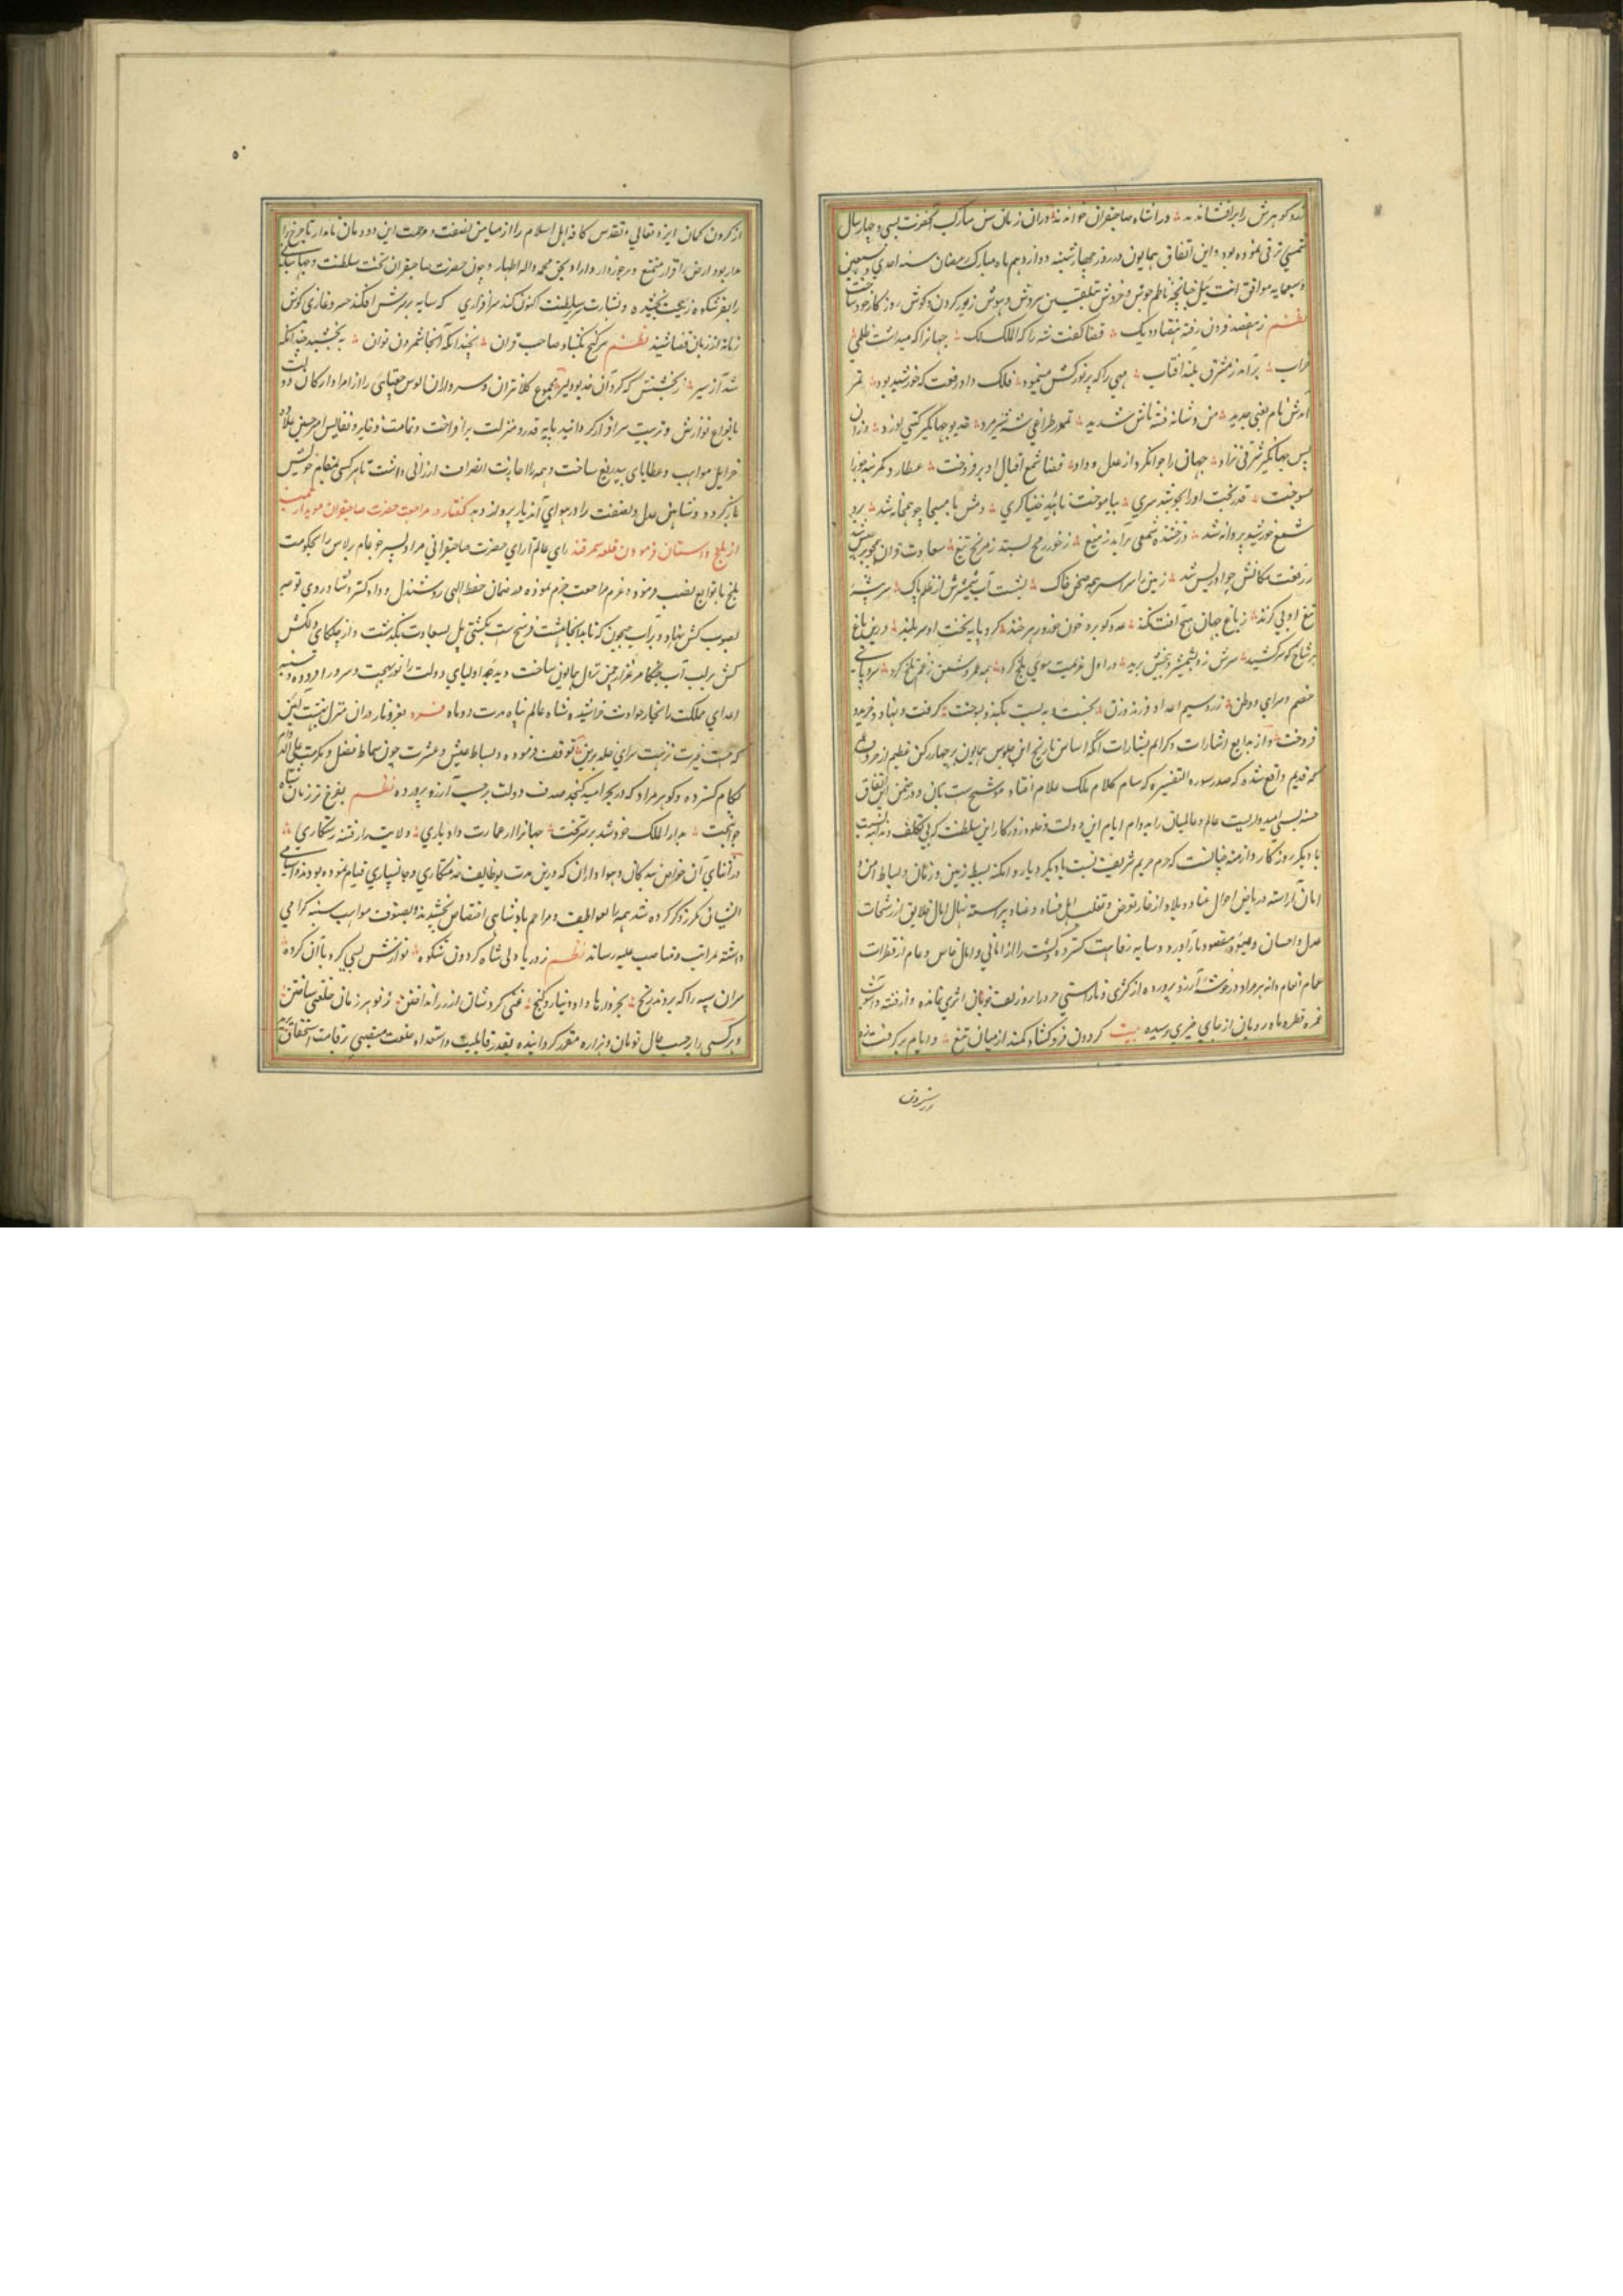 شد و گوهرش را برافشاندند ورا شاه صاحبقران خواندند دران زمان سن مبارک آنحضرت بسی و چهار سال
شمسی ترقی نموده بود و این اتفاق همایون در روز چهارشنبه دوازدهم ماه مبارک رمضان سنه احدی و سبعین
و سبعمایه موافق ایت ییل چنانچه ناظم جوش و خروش بتلقین سروش و هوش زیور گردن و گوش روزگار خود ساخت
نظم ز هفصد فزون رفته هفتاد و یک قضا گفت شه را که الملک لک جهانرا که میداشت ظلمی
خراب برآمد ز مشرق بلند افتاب مهی را که پرتو کشش مینمود فلک داد رفعت که خورشید بود تمر
آمدش نام یعنی حدید
پس جهانگیر شرقی نژاد جهان را جوانکرد از عدل و داد قضا شمع اقبال او برفروخت عطارد کمر بند جوزا
بسوخت قدر تخت اورا بیاموخت ناهید خنیاگری دمش با مسیحا چو همخانه شد برو
شمع خورشید پروانه شد درخشنده شمعی برآمد ز میغ
ز رفعت مکانش چو ادریس شد زمین را سراسر همه صحن خاک بشست آب شمشیرش از ظلم پاک
تیغ او بی گزند ز باغ جهان بیخ آفت بکند عدو گو برو خون خور و زهر خند گرو پایه تخت او سر بلند درین باغ
هر شاخ کو سرکشید سرش زد بشمشیر و بیخش برید در اول عزیمت سوی بلخ کرد
خصم و سرای و وطن زر و سیم اعدا و فرزند و زن بکند و بسوخت گرفت و نهاد و خرید و
فروخت و از بدایع اشارات و کرایم بشارات آنکه اساس تاریخ این جلوس همایون بر چهار رکن عظیم از حروف
که قدیم واقع شده که صدر سوره التفسیره که سام کلام ملک علام افتاد موشح ست بآن و در ضمن این اتفاق
حسنه بسی امیدواریست عالم و عالمیان را به دوام ایام این دولت و خلود روزگار این سلطنت که بی تکلف نسبت
با دیگر روزگار و ازمنه چنانست که حرم حریم شریف نسبت با دیگر دیار و امکنه بسیط زمین و زمان و بساط امن و
امان آراسته و ریاض احوال عباد و بلاد از خار تعرض و تغلب اهل فساد و عناد پیراسته نهال امال خلایق از رشحات
عدل و احسان میوه مقصود بار آورد و سایه رفاهیت گسترده و کشت زار امانی و امال خاص و عام از قطرات
غمام انعام دانه بر مراد در خوشه آرزو پرورده از کژی و ناراستی جز در ابرو و زلف خوبان اثری نمانده و از فتنه و آشوب
غمزه و طره ماه رویان از جای خبری نرسیده بیت گردون فرو گشاد کمند از میان تیغ و ایام برگرفت زه
ورشروق
۵۰
از گردون کمان ایزد تعالی و تقدس کافه اهل اسلام را از میامن نصفت و مرحمت این دودمان نامدار تا چرخ را
مدار بود ارض را قرار متمتع و برخوردار داراد بحق محمد و اله الطهار و چون حضرت صاحبقران تخت سلطنت و جهانبانی
را بفر شکوه زیب و زینت بخشیده و بشارت سریر سلطنت اکنون کند سرافرازی که سایه بر سرش افکند خسرو غازی گوش
زمانه از زبان قضا شنید نظم سر گنج بگشاد صاحب قران نچندانکه آنجا شمردن توان ببخشید چندانکه
شد آز سیر ز بخششش که کرد آن خدیو دلیر مجموع کلانتران و سروران الوس جغتای را از امرا و ارکان دولت
بانواع نوازش و تربیت سرافراز گردانید پایه قدر و منزلت برافراخت و تمامت ذخایر و نفایس امیر حسین علاوه
جزایل مواهب و عطایای بیدریغ ساخت و همه را اجازت انصراف ارزانی داشت تا هر کسی بمقام خویش
بازگردد و شاهین عدل و نصفت را در هوای آن دیار پرواز دهد گفتار در مراجعت حضرت صاحبقران موید
از بلخ و داستان فرمودن قلعه سمرقند رای عالم آرای حضرت صاحبقرانی مراد پسر جوغام برلاس را بحکومت
بلخ با توابع نصب فرمود و عزم مراجعت جزم نموده در ضمان حفظ الهی روشندل و دادگستر و شاد روی توجه
بصوب کش نهاد و بر آب جیحون بکشتی پل بسعادت بگذشت و از جلگای دلکش
کش بر لب آب نزول همایون ساخت و دیده اولیای دولت را نور بهجت و سرور افزود و سینه
اعدای مملکت را بخار حوادث خراشیده شاه عالم پناه مدت دو ماه فره بفر و ناز دران منزل
که جنت غیرت نزهت سرای خلد برین توقف فرموده و بساط عیش و عشرت چون سماط فضل و مکرمت
بکام گسترده و گوهر مراد که در بحر امید صدف دولت برحسب آرزو پرورده نظم
جوانبخت بدار الملک خود شد بر سر تخت جهانرا از عمارت داد یاری ولایت را ز فتنه رستگاری
در اثنای آن خواص بندگان و هواداران که درین مدت بوظایف خدمتکاری و جانسپاری قیام نموده بودند و اسامی
ایشان مکرر ذکر کرده شد همه را بعواطف و مراحم پادشاهی اختصاص بخشید و بصنوف مواهب سنیه گرامی
داشته بمراتب و مناصب علیه رساند نظم ز دریا دلی شاه گردون شکوه نوازش بسی کرد با آن گروه
سران سپه را که بردند رنج بخروارها داد دینار و گنج غنی کردشان از زر انداختن ز نو هر زمان خلعتی ساختن
و هر کسی را برحسب حال تومان و هزاره مقرر گردانیده بقدر قابلیت و استعداد خلعت منصبی بر قامت استحقاق